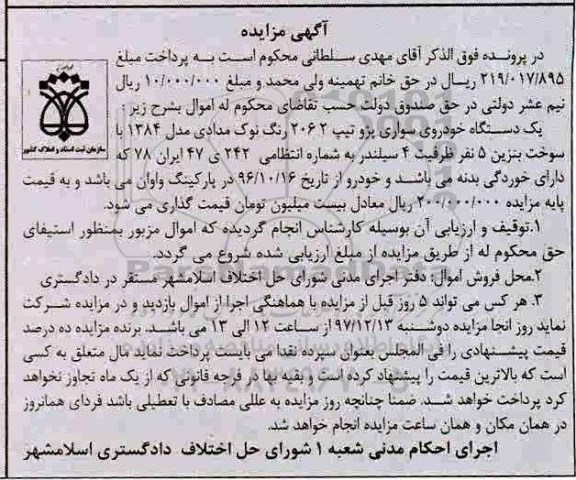 آگهی مزایده
در پرونده فوق الذکر آقای مهدی سلطانی محکوم است به پرداخت مبلغ
۲۱۹/۰۱۷/۸۹۵ ریال در حق خانم تهمینه ولی محمد و مبلغ ۱۰/۰۰۰/۰۰۰ ریال
نیم عشر دولتی در حق صندوق دولت حسب تقاضای محکوم له اموال بشرح زیر :
یک دستگاه خودروی سواری پژو تیپ ۲ ۲۰۶ رنگ نوک مدادی مدل ۱۳۸۴ با
سوخت بنزین ۵ نفر ظرفیت ۴ سیلندر به شماره انتظامی ۲۴۲ ی ۴۷ ایران ۷۸ که
دارای خوردگی بدنه می باشد و خودرو از تاریخ ۹۶/۱۰/۱۶ در پارکینگ واوان می باشد و به قیمت
پایه مزایده ۲۰۰/۰۰۰/۰۰۰ ریال معادل بیست میلیون تومان قیمت گذاری می شود.
۱.توقیف و ارزیابی آن بوسیله کارشناس انجام گردیده که اموال مزبور بمنظور استیفای
حق محکوم له از طریق مزایده از مبلغ ارزیابی شده شروع می گردد.
۲.محل فروش اموال: دفتر اجرای مدنی شورای حل اختلاف اسلامشهر مستقر در دادگستری
۳. هر کس می تواند ۵ روز قبل از مزایده با هماهنگی اجرا از اموال بازدید و در مزایده شرکت
نماید روز انجا مزایده دوشنبه ۹۷/۱۲/۱۳ از ساعت ۱۲ الی ۱۳ می باشد. برنده مزایده ده درصد
قیمت پیشنهادی را فی المجلس بعنوان سپرده نقدا می بایست پرداخت نماید مال متعلق به کسی
است که بالاترین قیمت را پیشنهاد کرده است و بقیه بها در فرجه قانونی که از یک ماه تجاوز نخواهد
کرد پرداخت خواهد شد. ضمنا چنانچه روز مزایده به عللی مصادف با تعطیلی باشد فردای همانروز
در همان مکان و همان ساعت مزایده انجام خواهد شد.
اجرای احکام مدنی شعبه ۱ شورای حل اختلاف دادگستری اسلامشهر
سازمان ثبت اسناد و املاک کشور